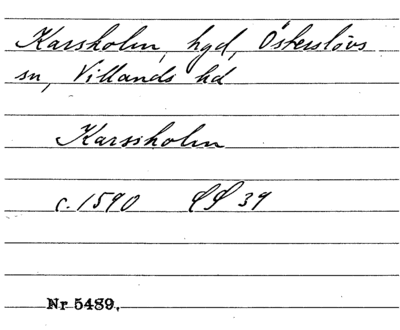 Karsholm, hgd, Österslövs
sn, Villands hd
Karssholm
c. 1590 SS 39
Nr 5489.